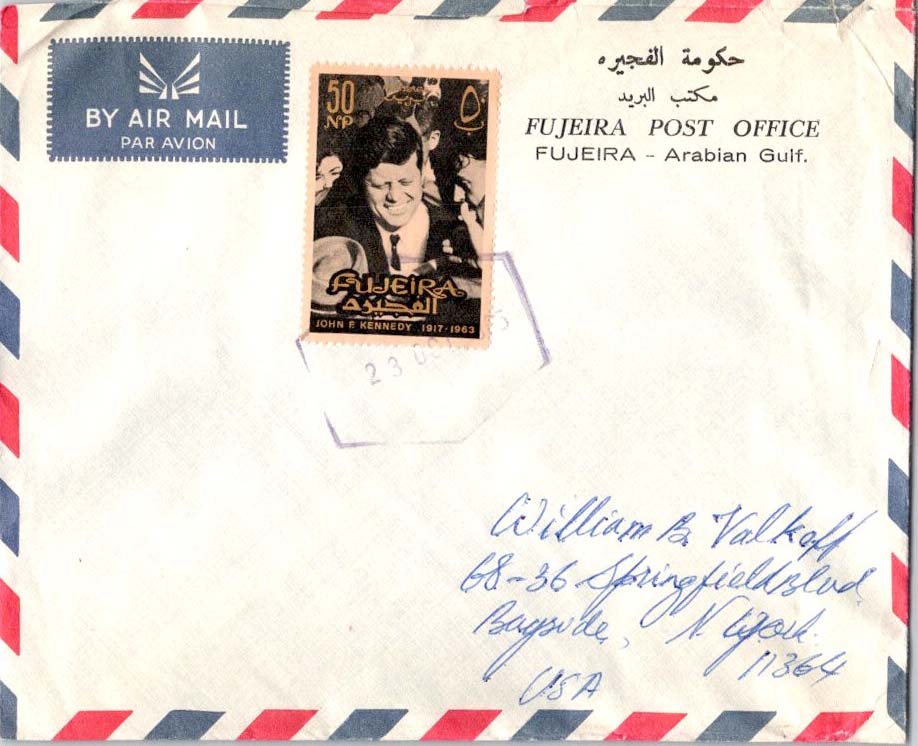 BY AIR MAIL
PAR AVION
50
NP
٥٠
FUJEIRA
الفجيره
JOHN F. KENNEDY 1917-1963
حكومة الفجيره
مكتب البريد
FUJEIRA POST OFFICE
FUJEIRA - Arabian Gulf.
23 OCT
William B. Valkoff
68-36 Springfield Blvd
Bayside, N. York.
11364
USA